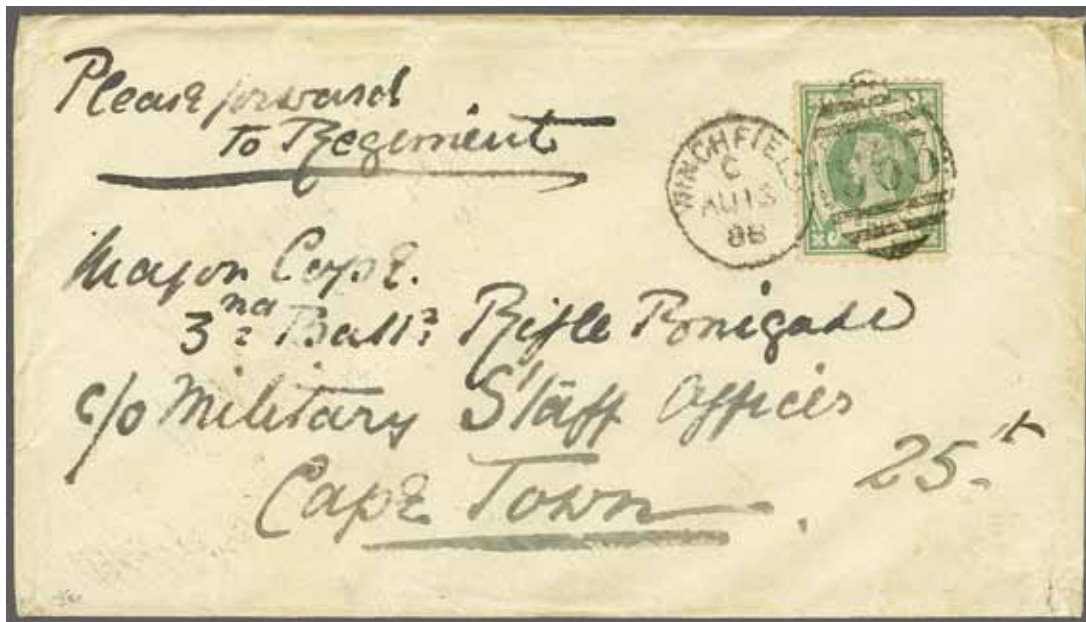 Please forward
To Regiment
WINCHFIELD
C
AU 13
88
Major Cope.
3rd Batt: Rifle Brigade
c/o Military Staff Officer
Cape Town
25th